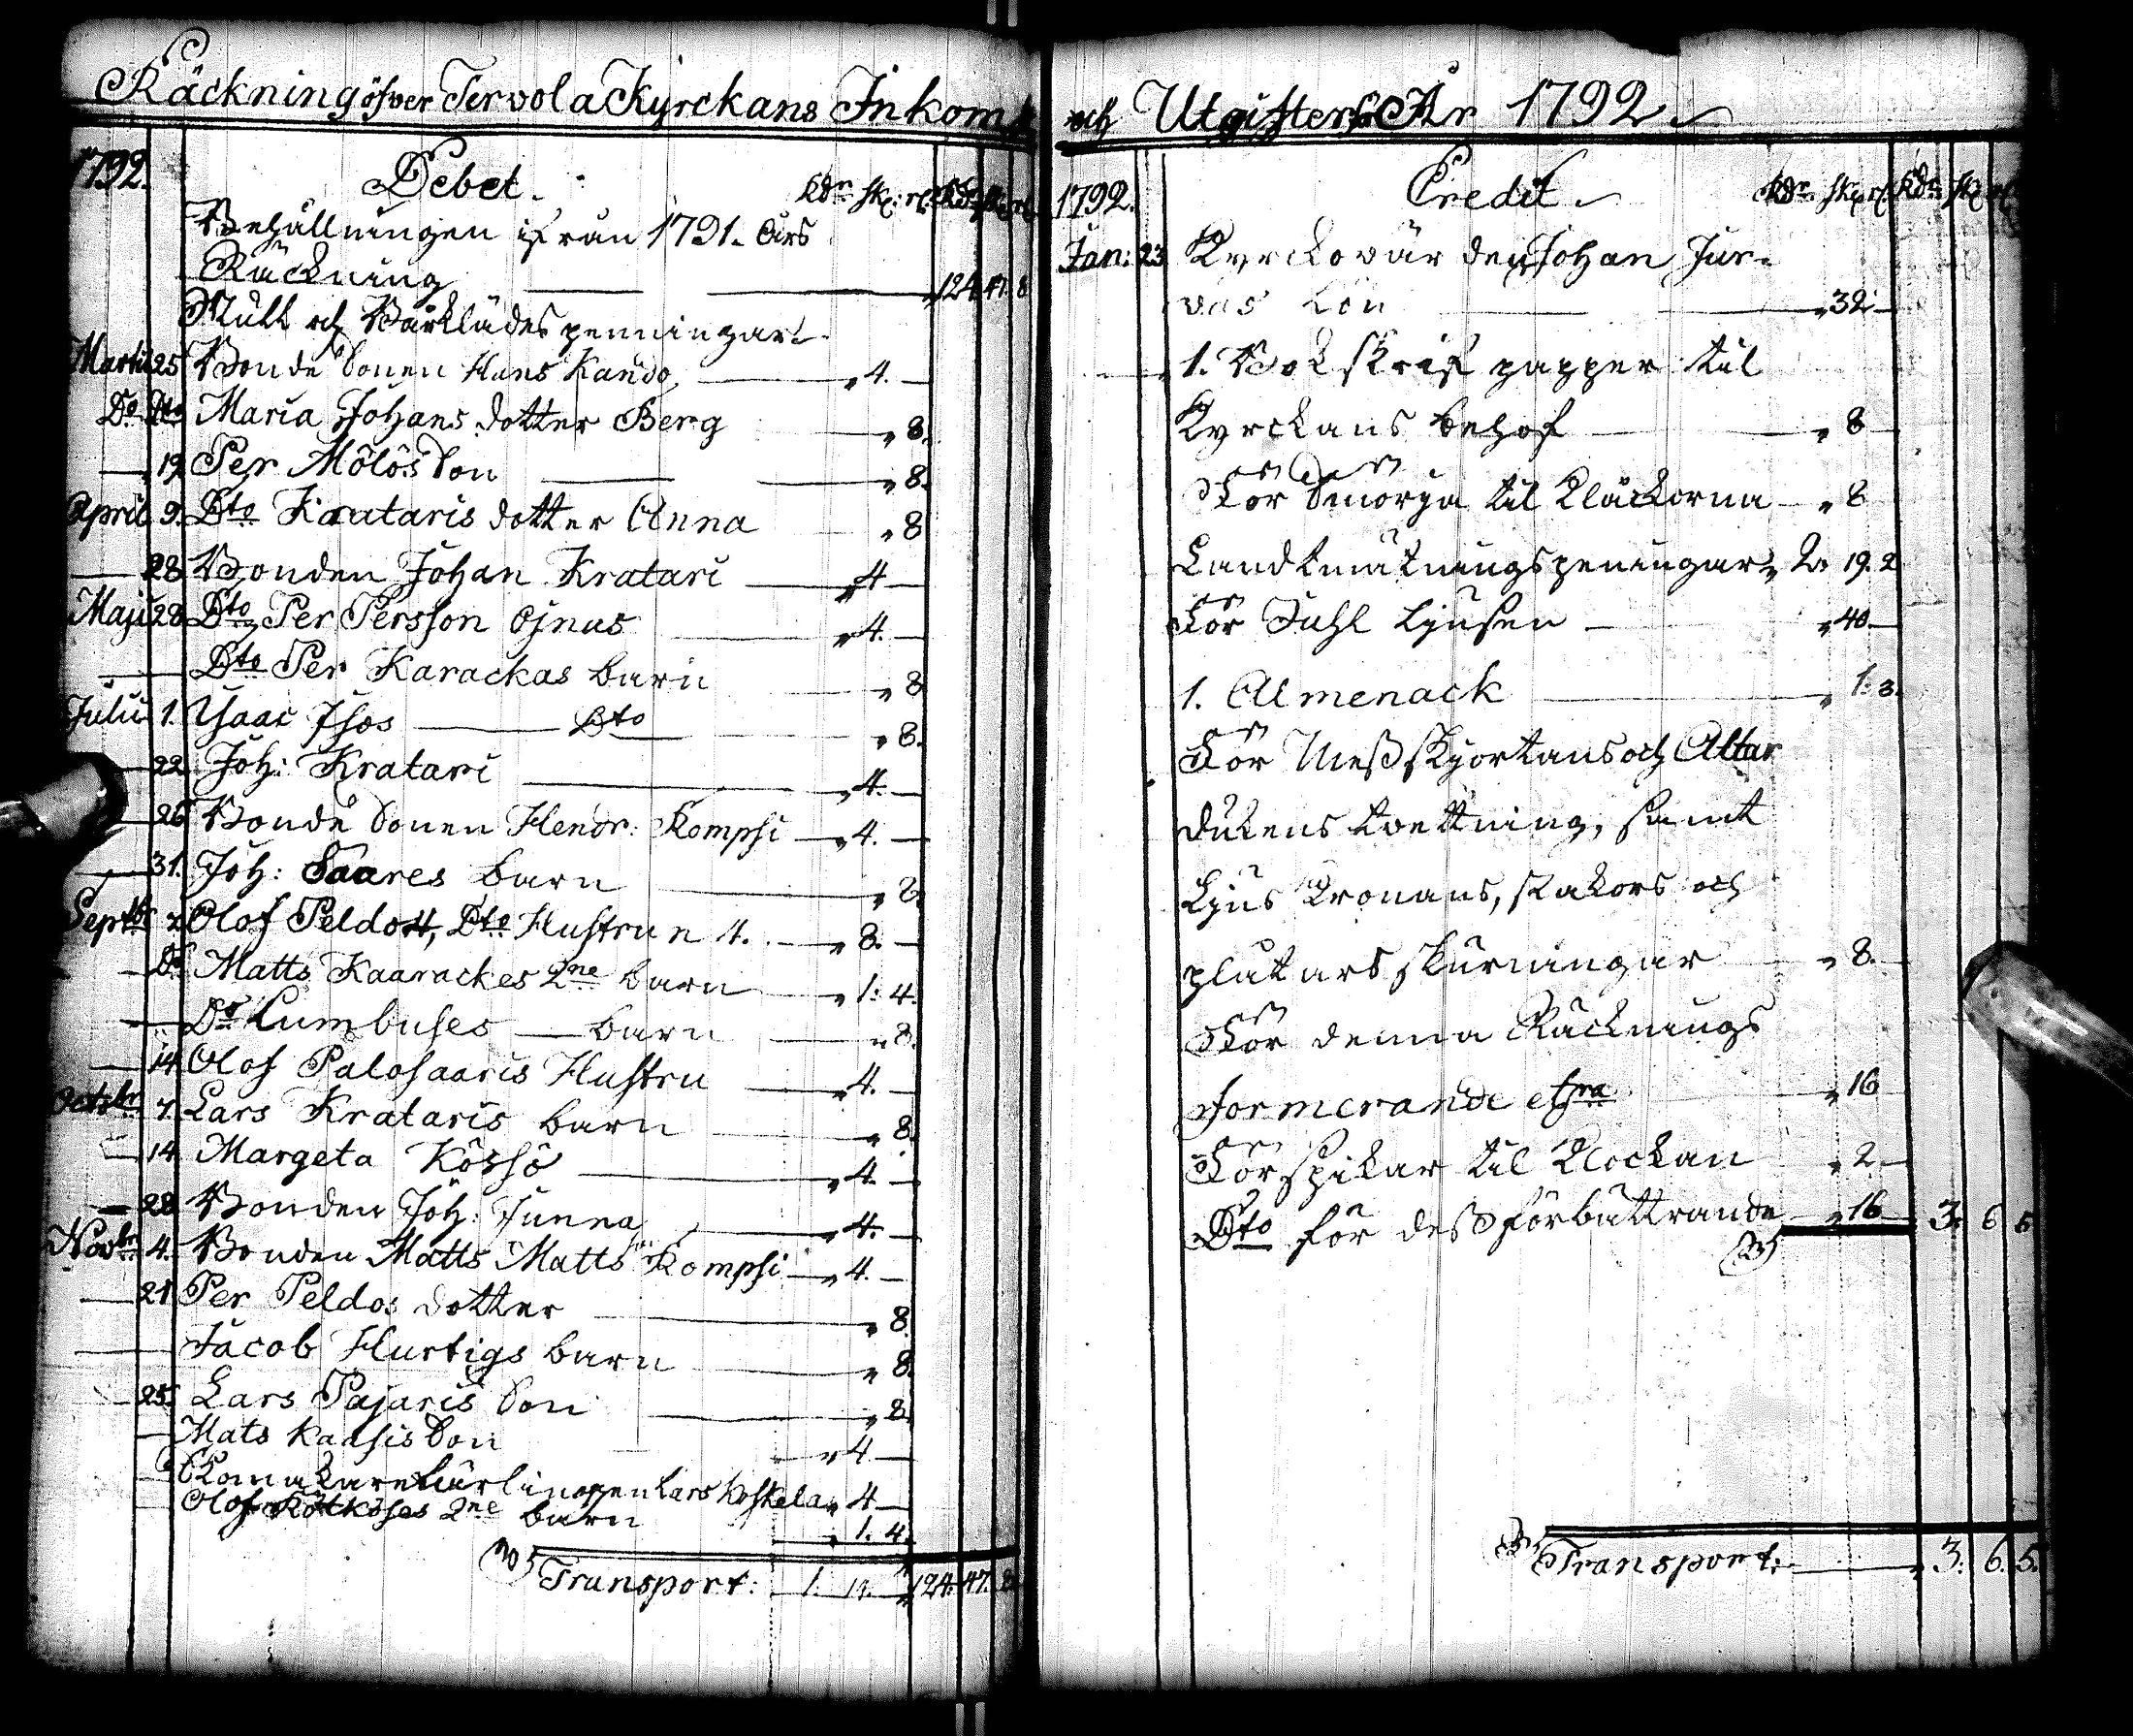 Räckning öfver Tervola Kyrckans Inkom
1792.
Debet.
Rdr sk: rs: Rdr sk: rs
Behållningen ifrån 1791. Års
Räckning 124. 47. 8
Mull och Bårklädes penningar.
Martii 25 Bonde Sonen Hans Kando „ 4. —
Do Dto Maria Johans dotter Berg „ 8.
— 19 Per Mölös Son „ 8.
April 9. Dto Krataris dotter Anna „ 8
— 28 Bonden Johan Kratari „ 4 —
Maji 28 Dto Per Persson Ojnas „ 4. —
— Dto Per Karackas barn „ 8
Julii 1. Ysaac Isos — Dto „ 8.
— 22 Joh: Kratari „ 4. —
26 Bonde Sonen Hendr: Kompsi „ 4. —
— 31. Joh: Saares barn „ 8.
Septbr 2. Olof Peldo 4, Dto Hustrun 4. „ 8. —
— Do Matts Kaarackes 2ne barn „ 1: 4.
— Do Cumbuses — barn „ 8.
— 14 Olof Palosaaris Hustru „ 4. —
Octobr 7. Lars Krataris barn „ 8.
— 14 Margeta Kössö „ 4. —
— 28 Bonden Joh: Junna „ 4. —
Novbr 4. Bonden Matts Matts Kompsi „ 4. —
— 21 Per Peldos dotter „ 8.
— Jacob Hurtigs barn „ 8.
— 25. Lars Pajaris Son „ 8.
— Mats Kaasis Son „ 4 —
Skomakare Lärlingen Lars Koskela „ 4 —
Olof Kötköses 2ne barn „ 1. 4.
Transport: 1. 14. „ 124. 47. 8
och Utgifter för År 1792
1792.
Credit
Rdr sk: rs: Rdr sk: rs
Jan: 23 Kyrckovärden Johan Jur-
vas Lön „ 32 —
1. Bok skrif papper til
Kyrckans behof „ 8 —
För Smörja til Kläckorna „ 8
Landtmätningspenningar „ 2. 19. 2
För Juhl Ljusen — „ 40 —
1. Almenack „ 1: 3.
För Messskjortans och Altar
dukens tvettning, samt
Ljus Kronans, stakars och
plåtars skurningar „ 8. —
För denna Räcknings
formerande etra „ 16
För spikar til Klockan „ 2 —
Dto för dess förbättrande „ 16 3. 6. 5
Transport. „ 3. 6. 5.